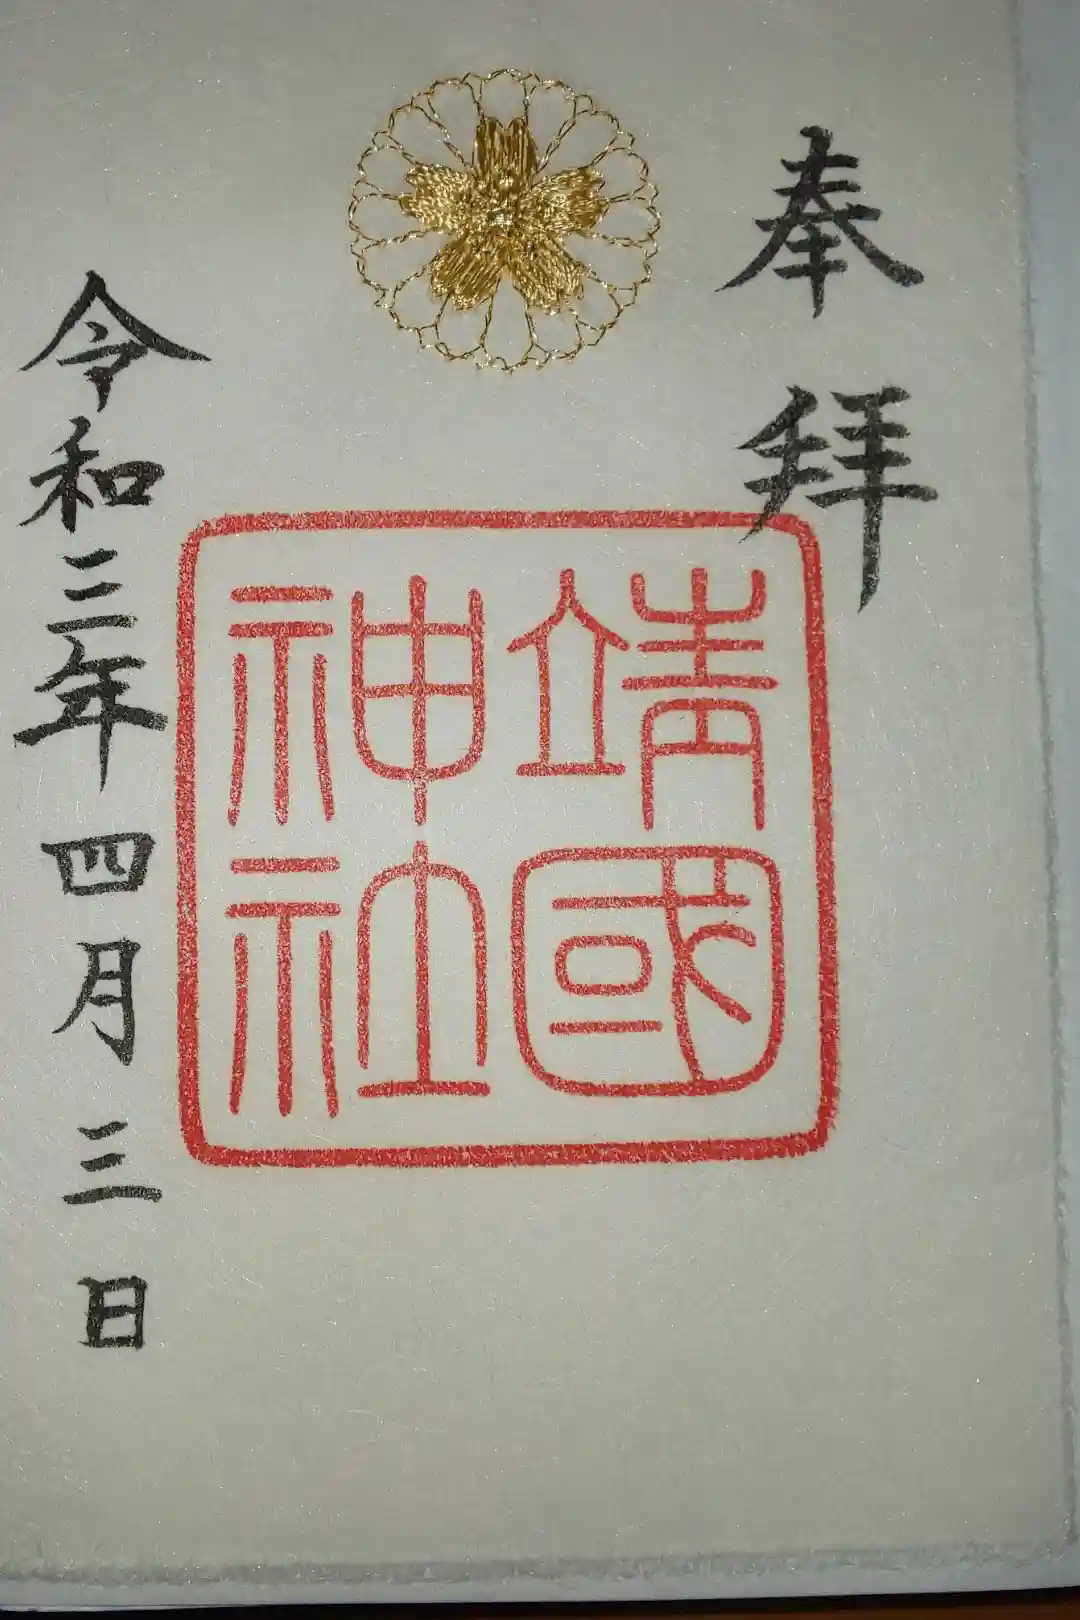 奉拜
靖國
神社
令和三年四月三日